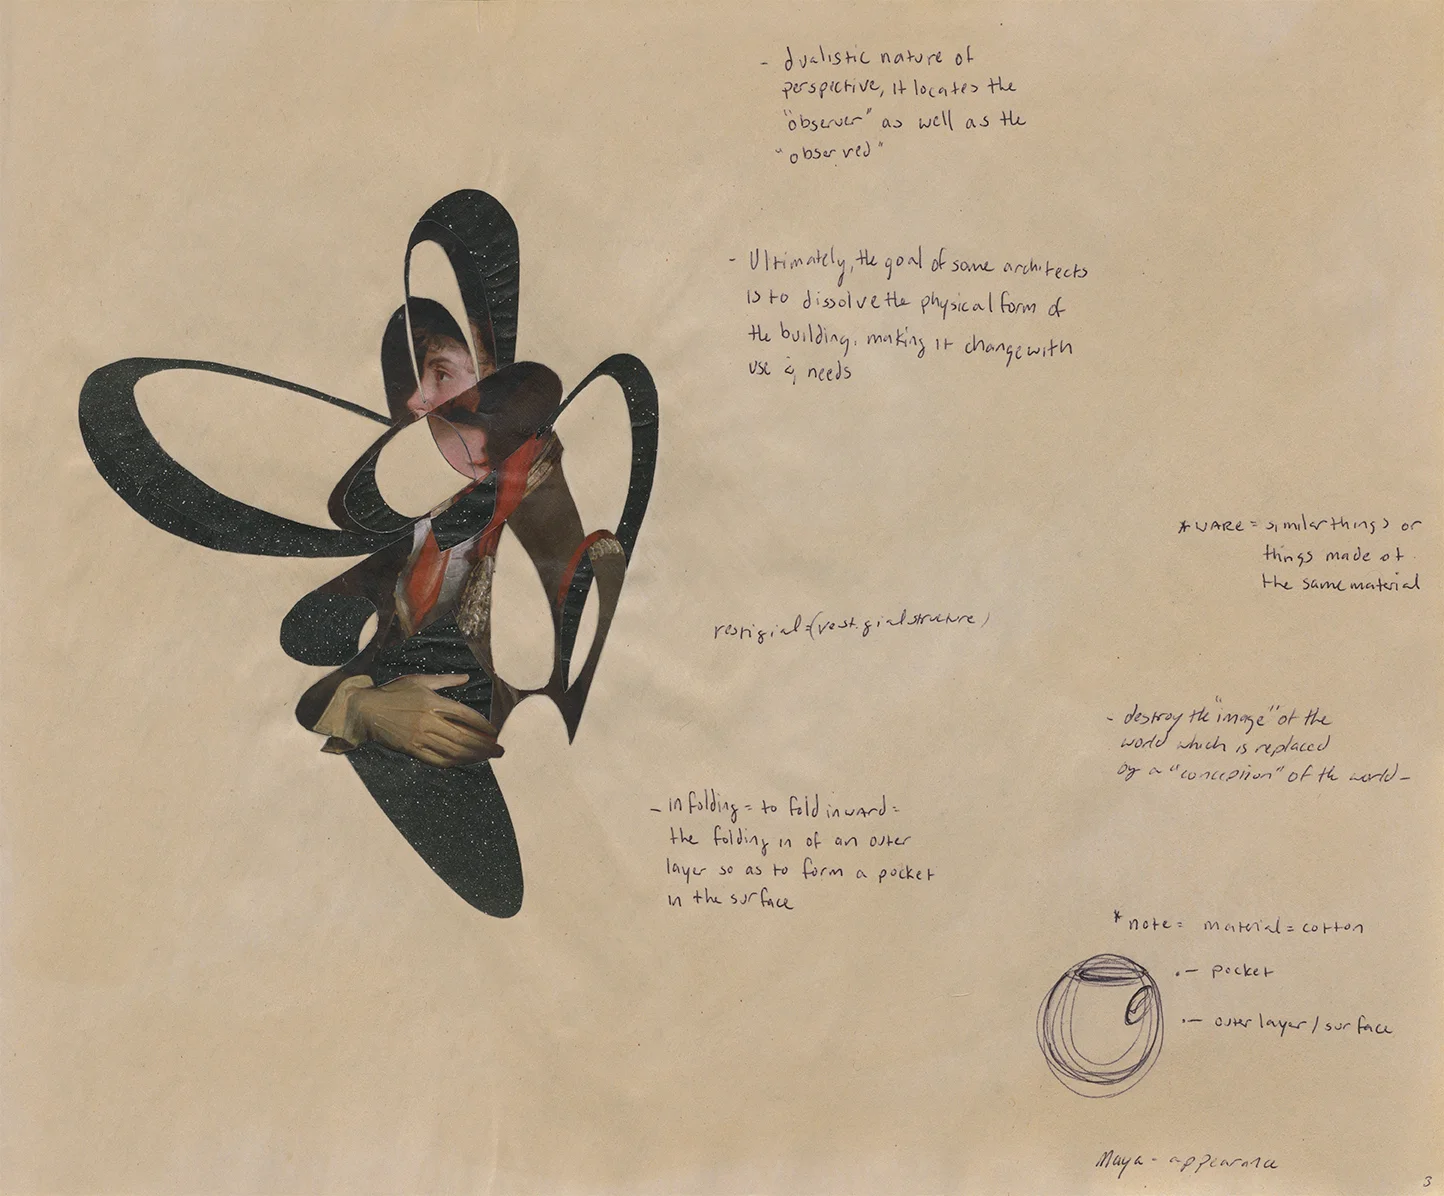 - dualistic nature of
perspective, it locates the
"observer" as well as the
"observed"
- Ultimately, the goal of some architects
is to dissolve the physical form of
the building, making it change with
use & needs
* WARE = similar things or
things made of
the same material
vestigial = (vestigial structure)
- destroy the "image" of the
world which is replaced
by a "conception" of the world -
- infolding = to fold inward =
the folding in of an outer
layer so as to form a pocket
in the surface
* note = material = cotton
- pocket
- outer layer / surface
Maya - appearance
3